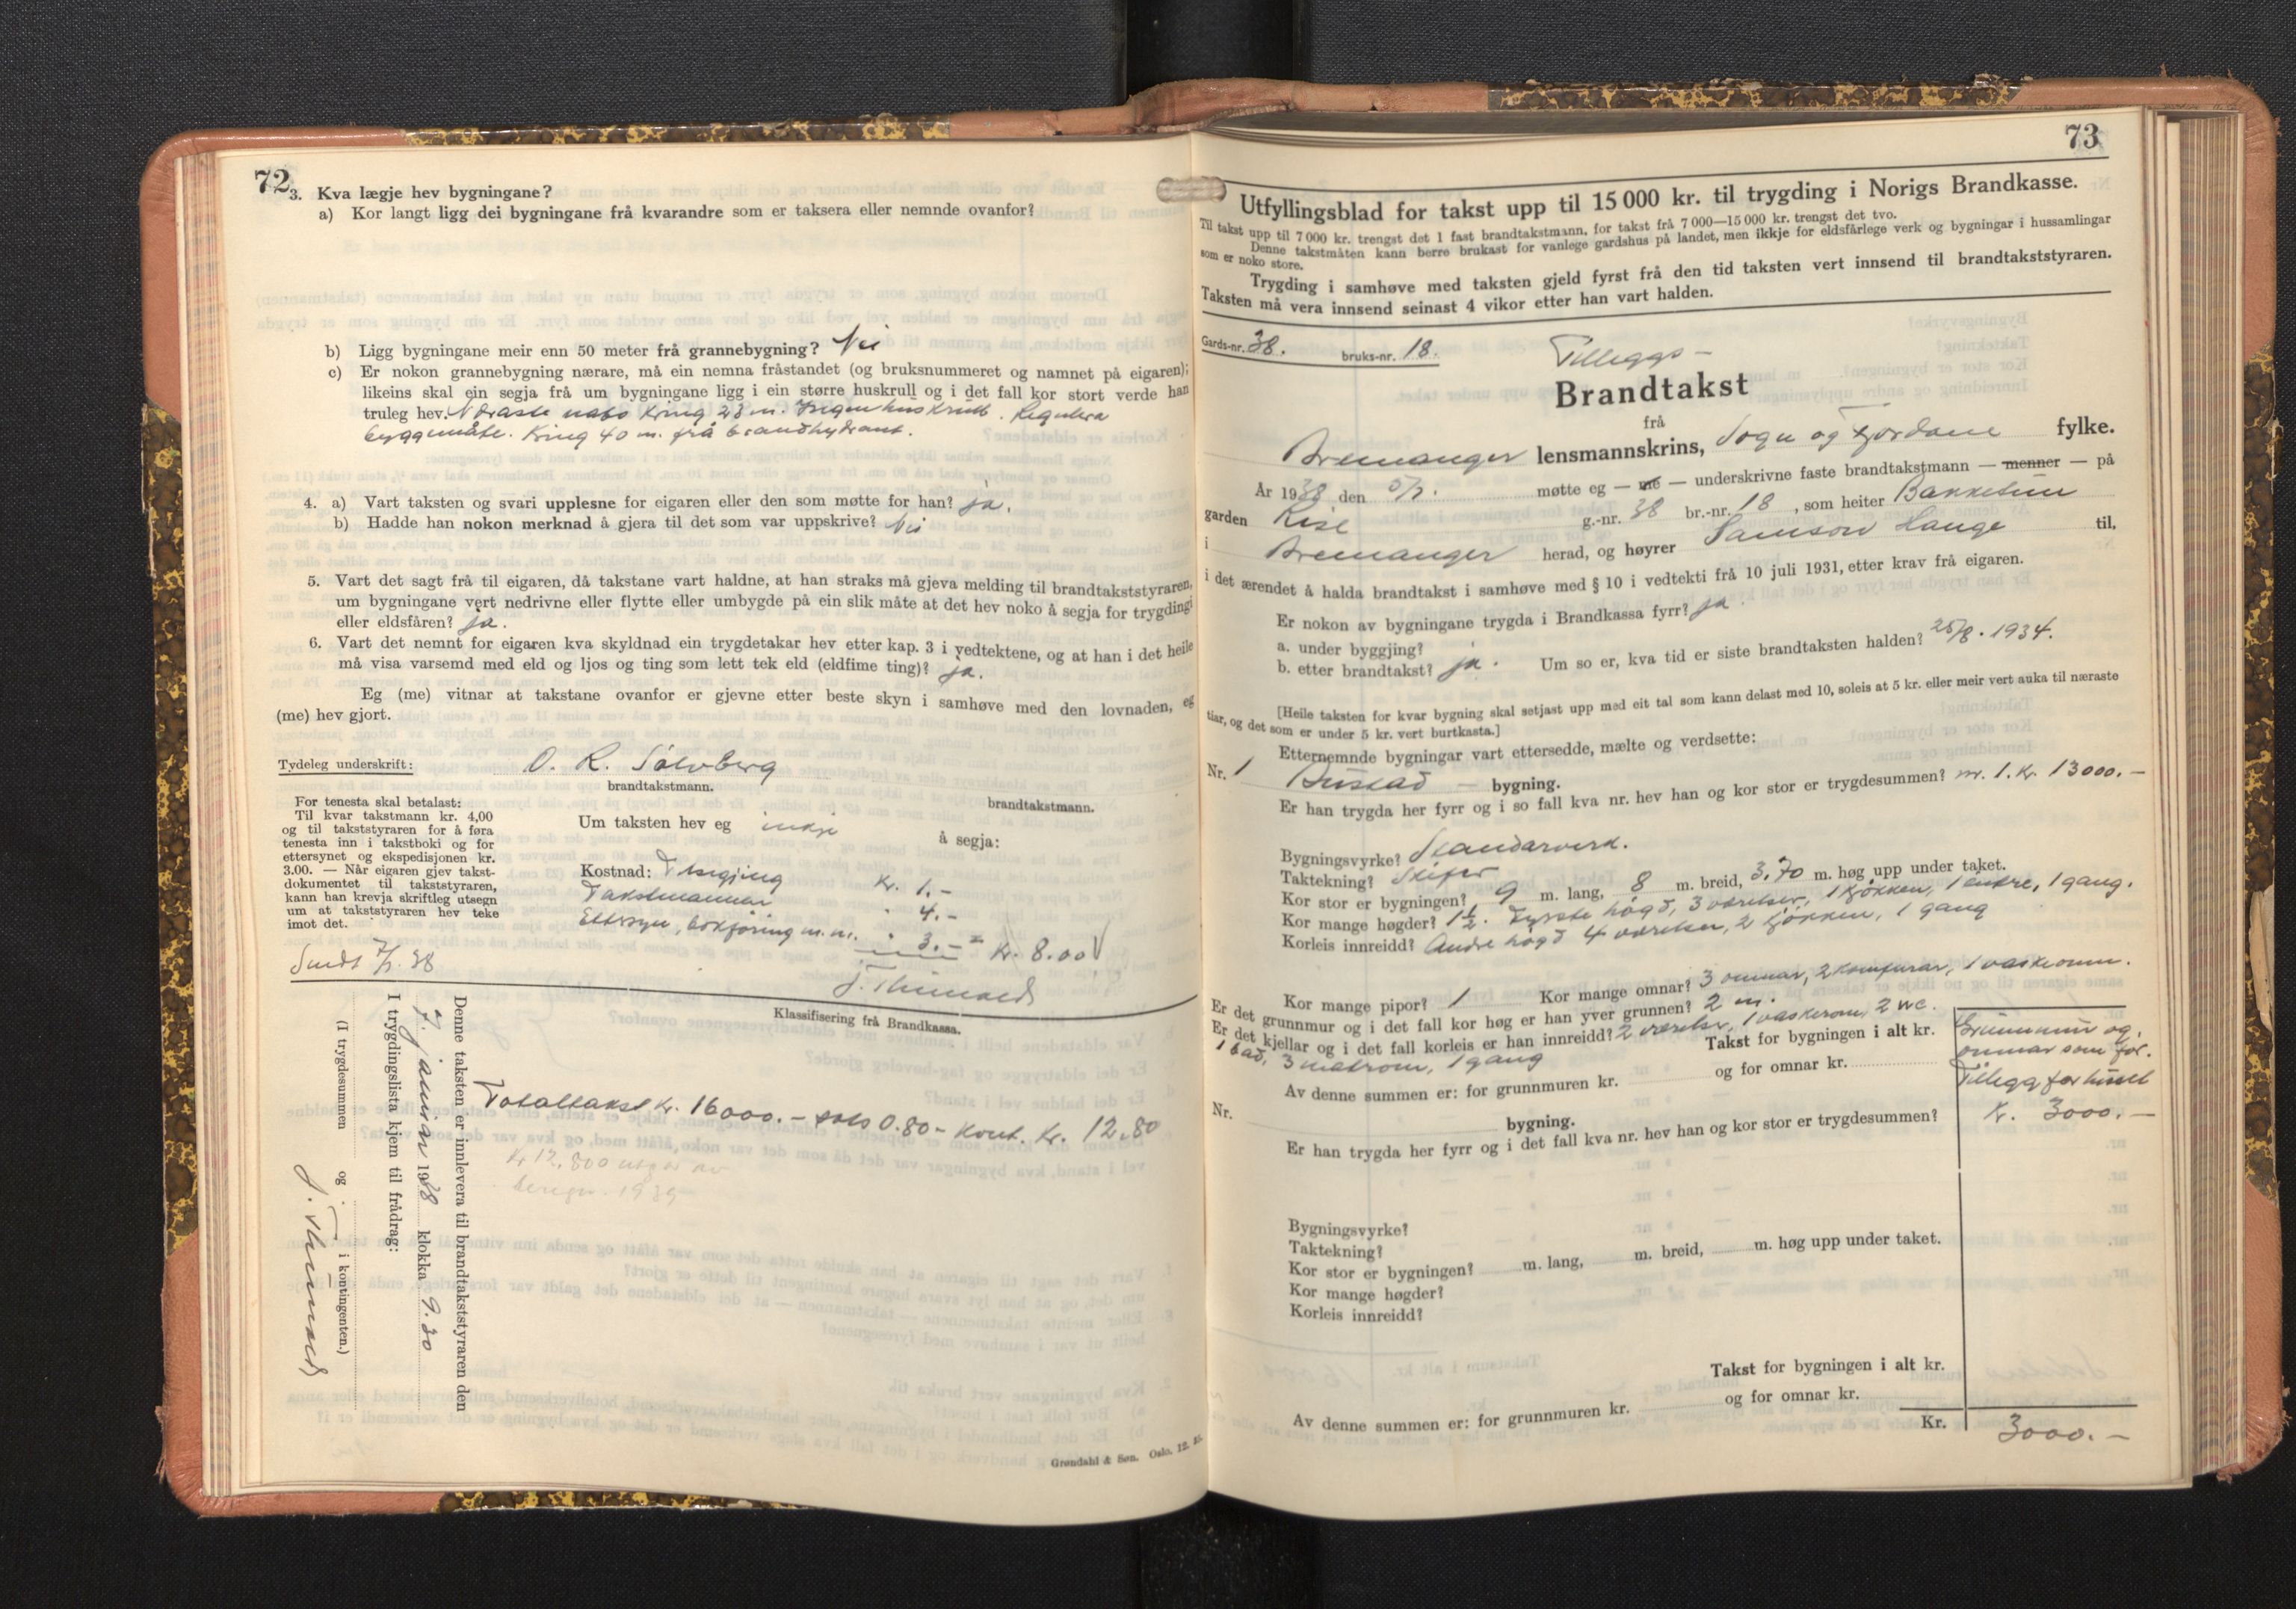 72
3. Kva lægje hev bygningane?
a) Kor langt ligg dei bygningane frå kvarandre som er taksera eller nemnde ovanfor?
b) Ligg bygningane meir enn 50 meter frå grannebygning? Nei
c) Er nokon grannebygning nærare, må ein nemna fråstandet (og bruksnummeret og namnet på eigaren);
likeins skal ein segja frå um bygningane ligg i ein større huskrull og i det fall kor stort verde han
truleg hev. Næraste nabo kring 23 m. Ingen huskrull. Regulera
byggemåte. Kring 40 m. frå brandhydrant.
4. a) Vart taksten og svari upplesne for eigaren eller den som møtte for han? ja.
b) Hadde han nokon merknad å gjera til det som var uppskrive? Nei
5. Vart det sagt frå til eigaren, då takstane vart haldne, at han straks må gjeva melding til brandtakststyraren,
um bygningane vert nedrivne eller flytte eller umbygde på ein slik måte at det hev noko å segja for trygdingi
eller eldsfåren? ja.
6. Vart det nemnt for eigaren kva skyldnad ein trygdetakar hev etter kap. 3 i vedtektene, og at han i det heile
må visa varsemd med eld og ljos og ting som lett tek eld (eldfime ting)? ja.
Eg (me) vitnar at takstane ovanfor er gjevne etter beste skyn i samhøve med den lovnaden, eg
(me) hev gjort.
Tydeleg underskrift: O. R. Sølvberg
brandtakstmann. brandtakstmann.
For tenesta skal betalast:
Til kvar takstmann kr. 4,00
og til takststyraren for å føra
tenesta inn i takstboki og for
ettersynet og ekspedisjonen kr.
3.00. — Når eigaren gjev takst-
dokumentet til takststyraren,
kann han krevja skriftleg utsegn
um at takststyraren hev teke
imot det.
Um taksten hev eg inkje å segja:
Kostnad: Kr. 1.-
Takstmannar " 4.-
Ettersyn, bokføring m.m. " 3.- = Kr. 8.00
Sendt 7/1. 38
Klassifisering frå Brandkassa.
Totaltakst kr. 16000.- 0.80 - kont. kr. 12.80
Kr 12.800 utgår av
1939
Denne taksten er innlevera til brandtakststyraren den
7. januar 1938 klokka 9.30
I trygdingslista kjem til frådrag:
(I trygdesummen og i kontingenten.)
Grøndahl & Søn. Oslo. 12.
73
Utfyllingsblad for takst upp til 15 000 kr. til trygding i Norigs Brandkasse.
Til takst upp til 7 000 kr. trengst det 1 fast brandtakstmann, for takst frå 7 000—15 000 kr. trengst det tvo.
Denne takstmåten kann berre brukast for vanlege gardshus på landet, men ikkje for eldsfårlege verk og bygningar i hussamlingar
som er noko store.
Trygding i samhøve med taksten gjeld fyrst frå den tid taksten vert innsend til brandtakststyraren.
Taksten må vera innsend seinast 4 vikor etter han vart halden.
Gards-nr. 38. bruks-nr. 18.
Tilleggs-
Brandtakst
frå
Bremanger lensmannskrins, Sogn og Fjordane fylke.
År 1938 den 5/1. møtte eg — me — underskrivne faste brandtakstmann — menner — på
garden Rise g.-nr. 38 br.-nr. 18, som heiter Bakketun
i Bremanger herad, og høyrer Samson Hauge til,
i det ærendet å halda brandtakst i samhøve med § 10 i vedtekti frå 10 juli 1931, etter krav frå eigaren.
Er nokon av bygningane trygda i Brandkassa fyrr? ja
a. under byggjing?
b. etter brandtakst? ja. Um so er, kva tid er siste brandtaksten halden? 25/8. 1934.
[Heile taksten for kvar bygning skal setjast upp med eit tal som kann delast med 10, soleis at 5 kr. eller meir vert auka til næraste
tiar, og det som er under 5 kr. vert burtkasta.]
Etternemnde bygningar vart ettersedde, mælte og verdsette:
Nr. 1 Bustad — bygning.
Er han trygda her fyrr og i so fall kva nr. hev han og kor stor er trygdesummen? nr. 1. Kr. 13000.-
Bygningsvyrke? Standarverk.
Taktekning? Skifer
Kor stor er bygningen? 9 m. lang, 8 m. breid, 3.70 m. høg upp under taket.
Kor mange høgder? 1½. Fyrste høgd, 3 værelser, 1 kjøkken, 1 entre, 1 gang.
Korleis innreidd? Andre høgd 4 værelser, 2 kjøkken, 1 gang
Kor mange pipor? 1 Kor mange omnar? 3 omnar, 2 komfurar, 1 vaskeomn.
Er det grunnmur og i det fall kor høg er han yver grunnen? 2 m.
Er det kjellar og i det fall korleis er han innreidd? 2 værelse, 1 vaskerom, 2 wc.
1 bad, 3 matrom, 1 gang Takst for bygningen i alt kr.
Av denne summen er: for grunnmuren kr. og for omnar kr.
Grunnmur og
omnar som før.
Tillegg for huset
Kr. 3000.-
Nr. bygning.
Er han trygda her fyrr og i det fall kva nr. hev han og kor stor er trygdesummen?
Bygningsvyrke?
Taktekning?
Kor stor er bygningen? m. lang, m. breid, m. høg upp under taket.
Kor mange høgder?
Korleis innreidd?
Takst for bygningen i alt kr.
Av denne summen er: for grunnmuren kr. og for omnar kr.
Kr. 3000.-